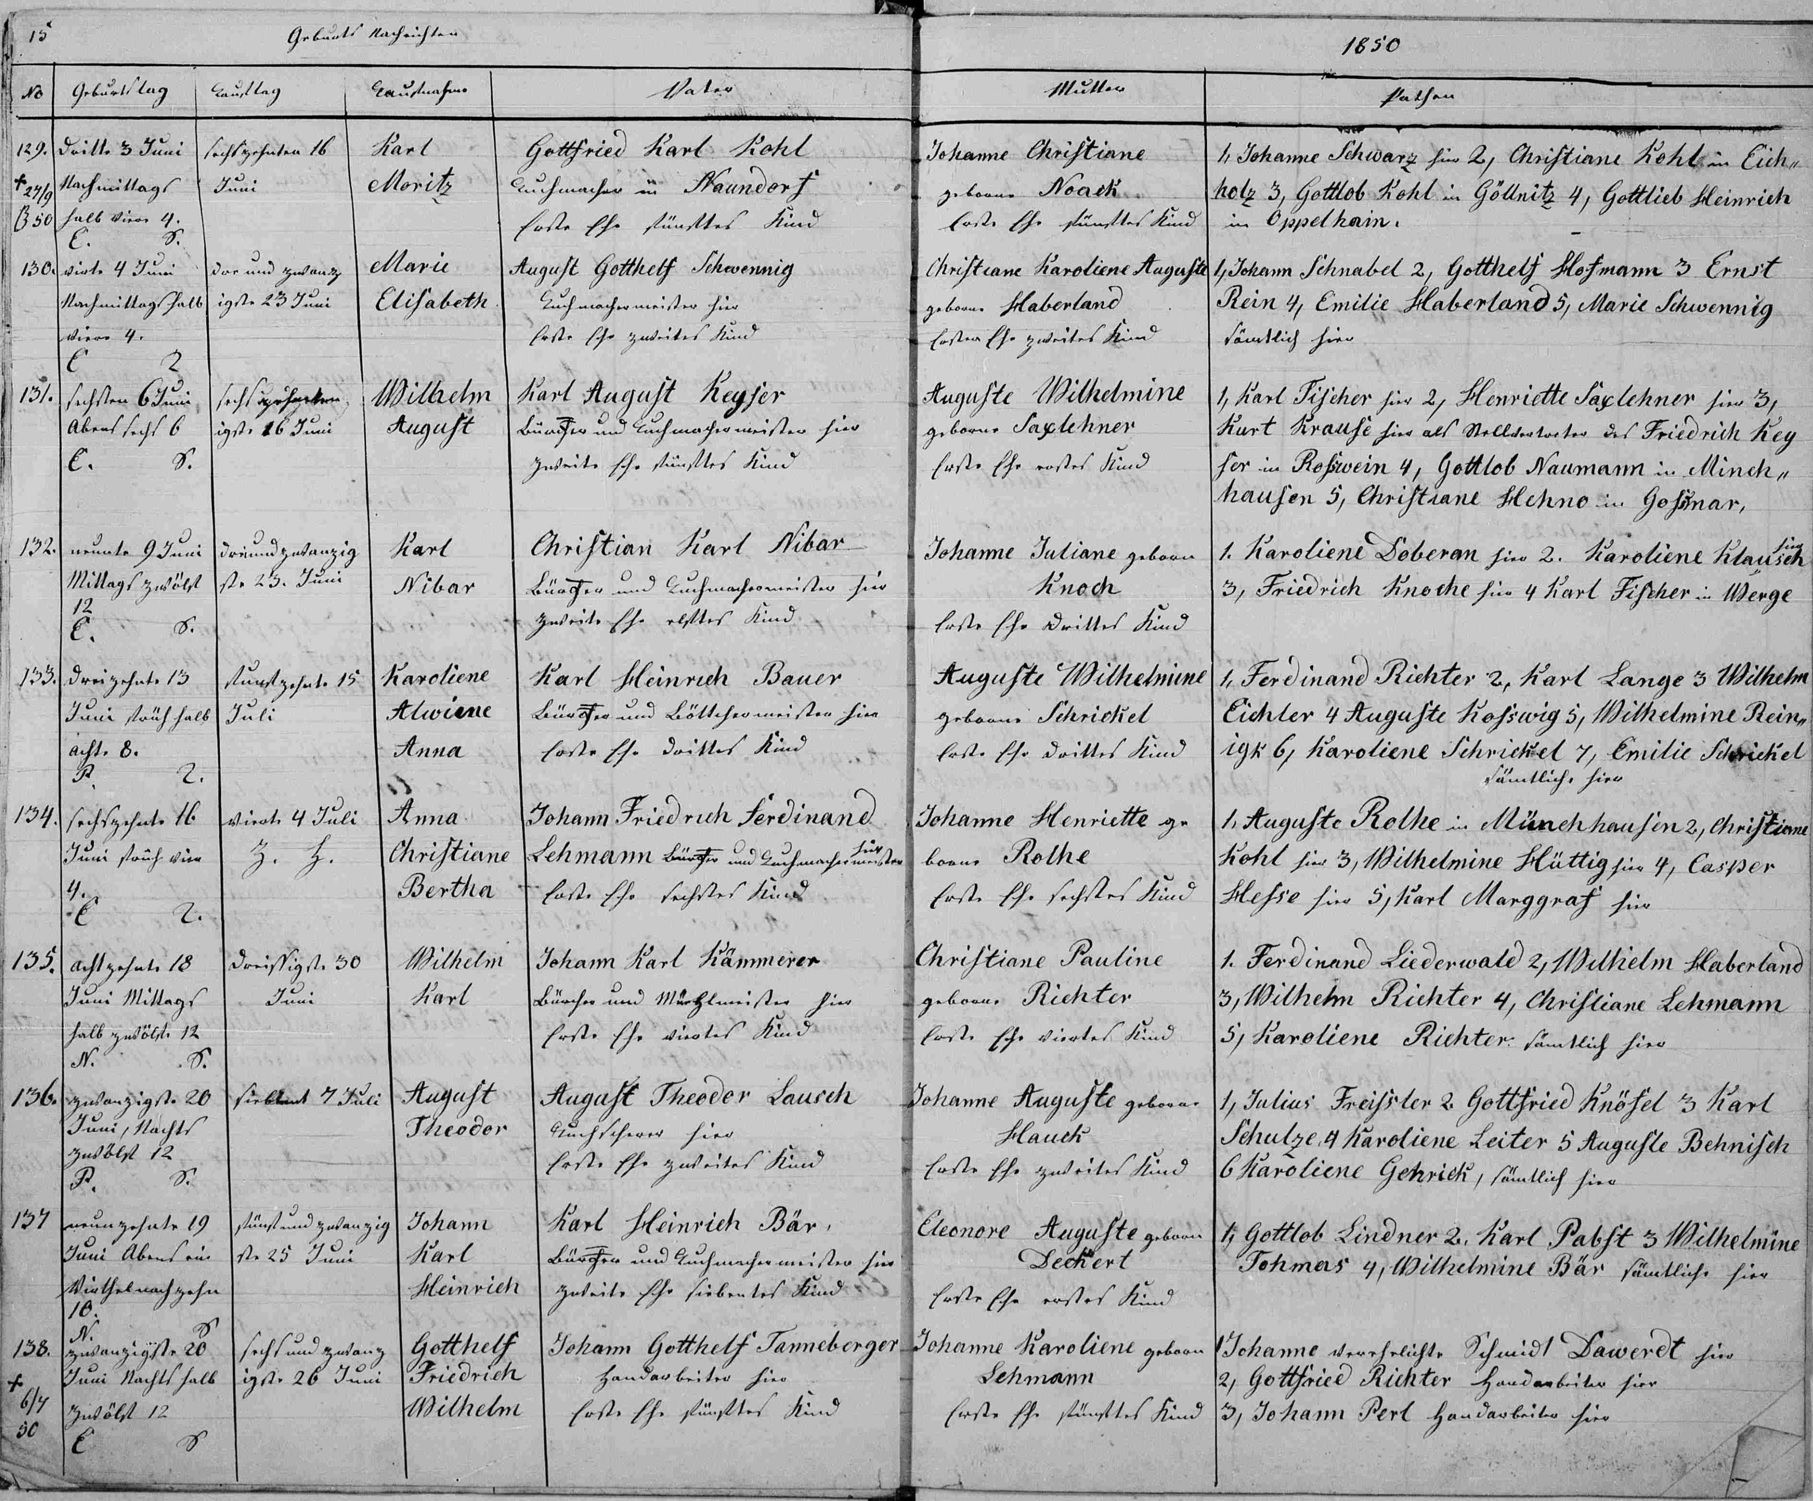 15 Geburts Nachrichten
1850
No Geburtstag Tauftag Taufnahme Vater Mutter Pathen
129. Dritte 3 Juni sechszehnten 16 Karl Gottfried Karl Kohl Johanne Christiane 1, Johanne Schwarz hir 2, Christiane Kohl in Eich„
+ 27/9 Nachmittags Juni Moritz Tuchmacher in Naundorf geborne Noack holz 3, Gottlob Kohl in Göllnitz 4, Gottlieb Heinrich
50 halb vier 4. Erste Ehe fünftes Kind Erste Ehe fünftes Kind in Oppelhain.
C. S.
130. virte 4 Juni drei und zwanz Marie August Gotthelf Schwennig Christiane Karoliene Auguste 1, Johann Schnabel 2, Gotthelf Hofmann 3 Ernst
Nachmittags halb igste 23 Juni Elisabeth Tuchmachermeister hir geborne Haberland Rein 4, Emilie Haberland 5, Marie Schwennig
viere 4. Erste Ehe zweites Kind Ersten Ehe zweites Kind sämtlich hier
C 2
131. sechsten 6 Juni sechs Wilhelm Karl August Keyser Auguste Wilhelmine 1, Karl Fischer hir 2, Henriette Saxlehner hir 3,
Abens sechs 6 igste 16 Juni August Bürcher und Tuchmachermeister hir geborne Saxlehner Kurt Krause hir als Stellvertreter des Friedrich Key
C. S. zweite Ehe fünftes Kind Erste Ehe erstes Kind ser in Roßwein 4, Gottlob Naumann in Minch„
hausen 5, Christiane Hehno in Goßmar,
132. neunte 9 Juni dreiundzwanzig Karl Christian Karl Nibar Johanne Juliane geborn 1. Karoliene Doberan hir 2. Karoliene Klausch hir
Mittags zwölf ste 23. Juni Nibar Bürcher und Tuchmachermeister hir Knoch 3, Friedrich Knoche hir 4 Karl Fischer in Werge
12 zweite Ehe elftes Kind Erste Ehe drittes Kind
C. S.
133. Dreizehnte 13 funfzehnte 15 Karoliene Karl Heinrich Bauer Auguste Wilhelmine 1, Ferdinand Richter 2, Karl Lange 3 Wilhelm
Juni früh halb Juli Alwiene Bürcher und Böttchermeister hir geborne Schrickel Eichler 4 Auguste Koswig 5, Wilhelmine Rein„
acht 8. Anna Erste Ehe drittes Kind Erste Ehe drittes Kind igk 6, Karoliene Schrickel 7, Emilie Schrickel
P. 2. sämtliche hier
134. sechszehnte 16 vierte 4 Juli Anna Johann Friedrich Ferdinand Johanne Henriette ge 1, Auguste Rothe in Münchhausen 2, Christiane
Juni früh vier Z. H. Christiane Lehmann Bürcher und Tuchmachermeister hir borne Rothe Kohl hir 3, Wilhelmine Hüttig hir 4, Casper
4. Bertha Erste Ehe sechstes Kind Erste Ehe sechstes Kind Hesse hir 5, Karl Marggraf hir
C 2.
135. Achtzehnte 18 Dreissigste 30 Wilhelm Johann Karl Kämmerer Christiane Pauline 1. Ferdinand Liederwald 2, Wilhelm Haberland
Juni Mittags Juni Karl Bürcher und hir geborne Richter 3, Wilhelm Richter 4, Christiane Lehmann
halb zwölfe 12 Erste Ehe viertes Kind Erste Ehe viertes Kind 5, Karoliene Richter sämtlich hier
N. S.
136. zwanzigste 20 siebent 7 Juli August August Theodor Lausch Johanne Auguste geborne 1, Julius Freissler 2 Gottfried Knösel 3 Karl
Juni, Nachts Theodor Tuchscherer hir Hauck Schulze 4 Karoliene Leiter 5 Auguste Behnisch
zwölf 12 Erste Ehe zweites Kind Erste Ehe zweites Kind 6 Karoliene Gehrick, sämtlich hier
P. S.
137 neunzehnte 19 fünfundzwanzig Johann Karl Heinrich Bär, Eleonore Auguste geborn 1, Gottlob Lindner 2. Karl Pabst 3 Wilhelmine
Juni Abens ein ste 25 Juni Karl Bürcher und Tuchmachermeister hir Deckert Tohmas 4, Wilhelmine Bär sämtliche hier
Virthel nach zehn Heinrich zweite Ehe siebentes Kind Erste Ehe erstes Kind
10.
N. S
138. zwanzigste 20 sechs und zwanz Gotthelf Johann Gotthelf Tanneberger Johanne Karoliene geborn 1 Johanne verehelichte Schmidt Dawerdt hir
+ Juni Nachts halb igste 26 Juni Friedrich Handarbeiter hir Lehmann 2, Gottfried Richter Handarbeiter hir
6/7 zwölf 12 Wilhelm Erste Ehe fünftes Kind Erste Ehe fünftes Kind 3, Johann Perl Handarbeiter hir
50 C S